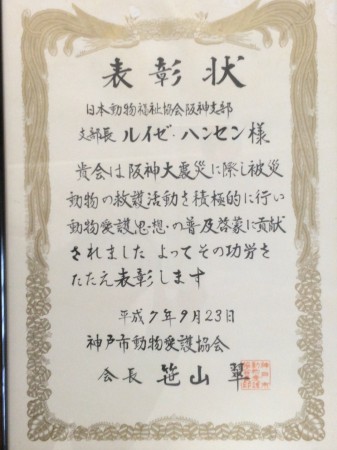 表彰状
日本動物福祉協会阪神支部
支部長 ルイゼ・ハンセン様
貴会は阪神大震災に際し被災
動物の救護活動を積極的に行い
動物愛護思想の普及啓蒙に貢献
されました よってその功労を
たたえ表彰します
平成7年9月23日
神戸市動物愛護協会
会長 笹山 翠